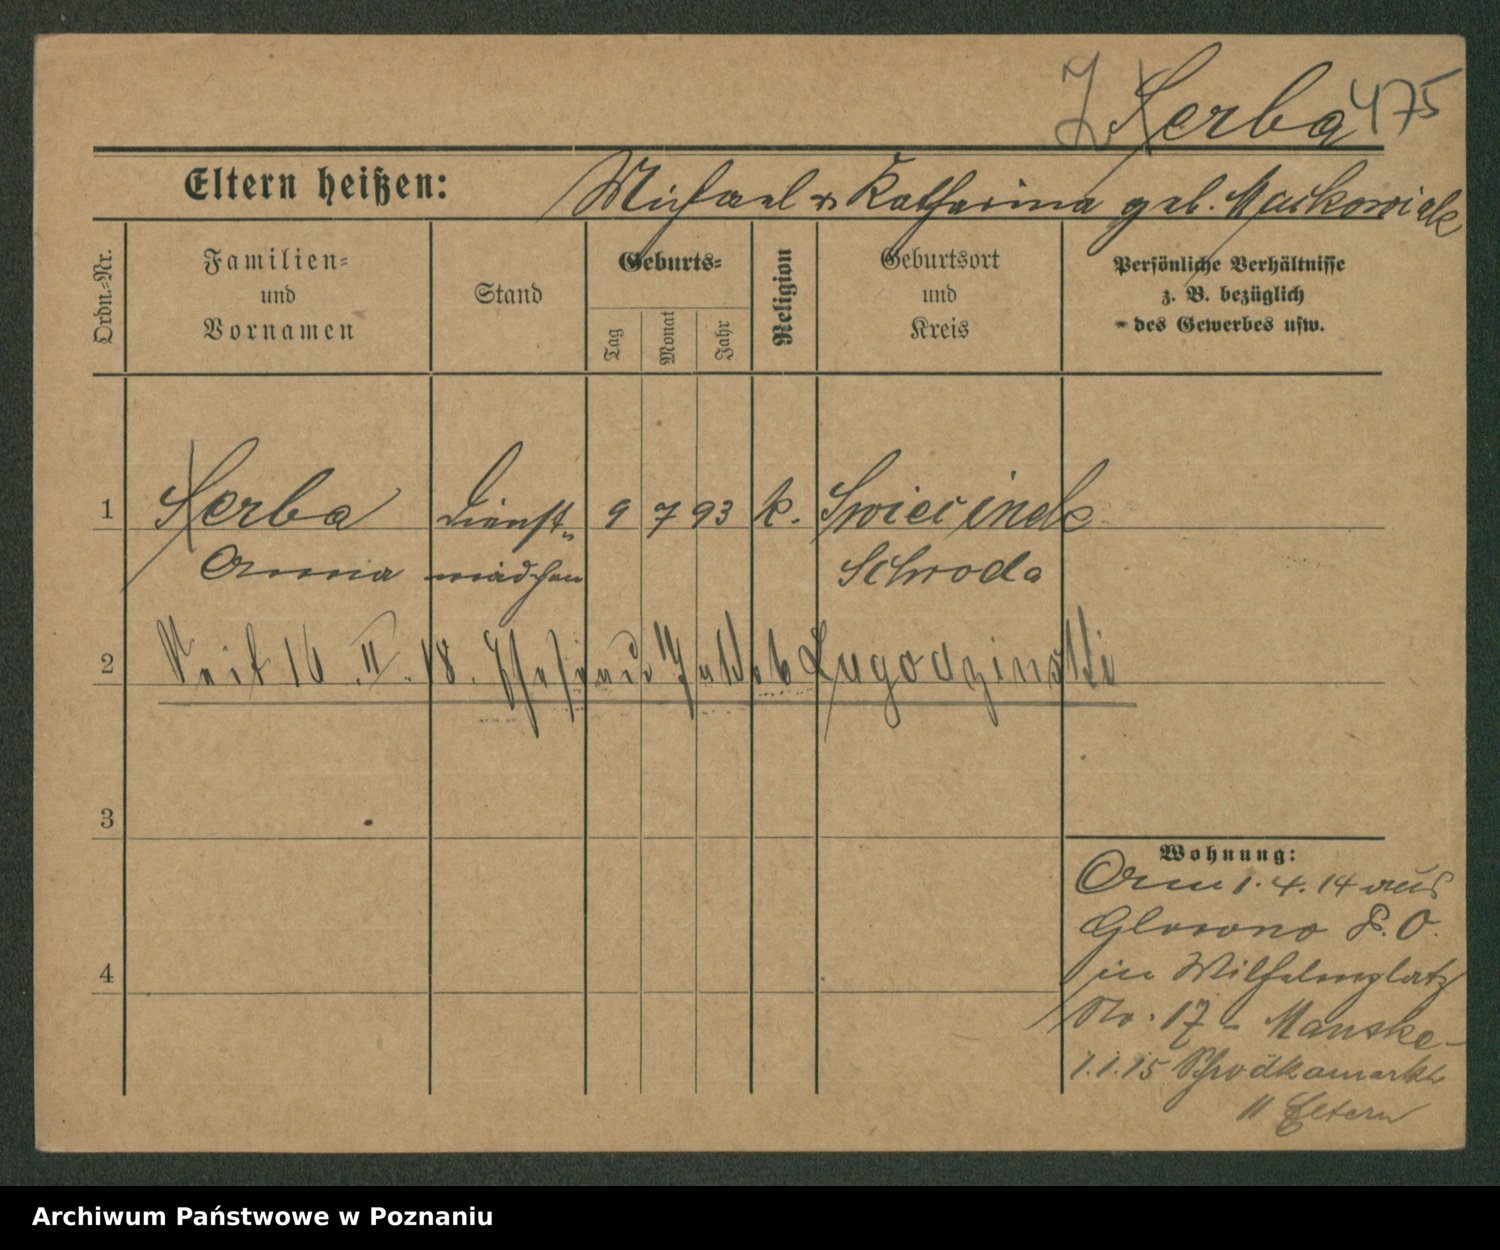 Z Serba 475
Eltern heißen: Michael u Katharina geb. Maćkowiak
Ordn.-Nr.
Familien-
und
Vornamen
Stand
Geburts-
Tag
Monat
Jahr
Religion
Geburtsort
und
Kreis
Persönliche Verhältnisse
z. B. bezüglich
des Gewerbes usw.
1 Serba Dienst- 9 7 93 k. Swiecinek
Anna mädchen Schroda
2 Seit 16. II. 18. Ehefrau Jakob Lugodzinski
3
4
Wohnung:
Am 1. 4. 14 aus
Glowno P. O.
in Wilhelmplatz
No. 17 - Manske -
1.1.15 Schrodkamarkt
11 Eltern
Archiwum Państwowe w Poznaniu